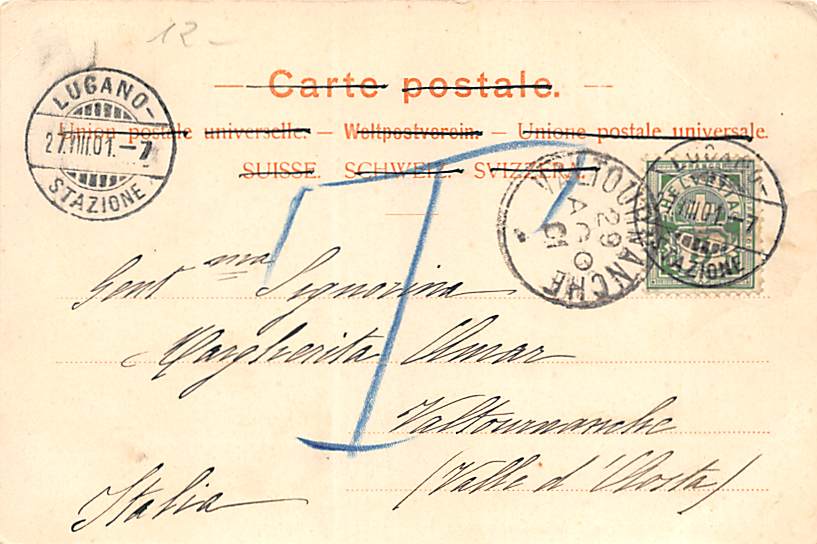 12-
Carte postale.
Union postale universelle. — Weltpostverein. — Unione postale universale.
SUISSE. SCHWEIZ. SVIZZERA.
LUGANO-
27.VIII.01.-7
STAZIONE
VALTOURNANCHE
29
AGO
01
VIII.01.-7
STAZIONE
T
Gent ma Signorina
Margherita Amar
Valtournanche
(Valle d'Aosta)
Italia